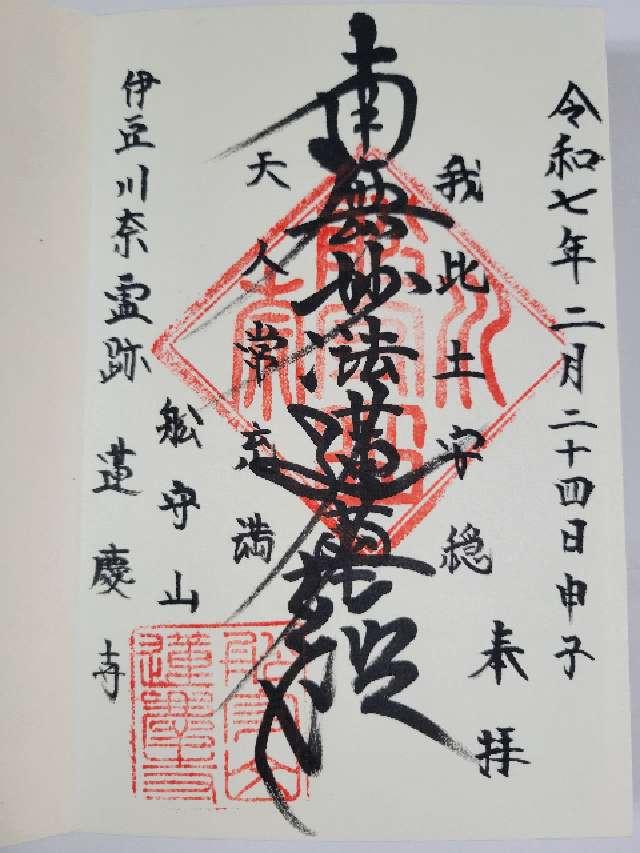 令和七年二月二十四日甲子
奉拝
我此土安穏
南無妙法蓮華経
天人常充満
舩守山
伊豆川奈霊跡 蓮慶寺